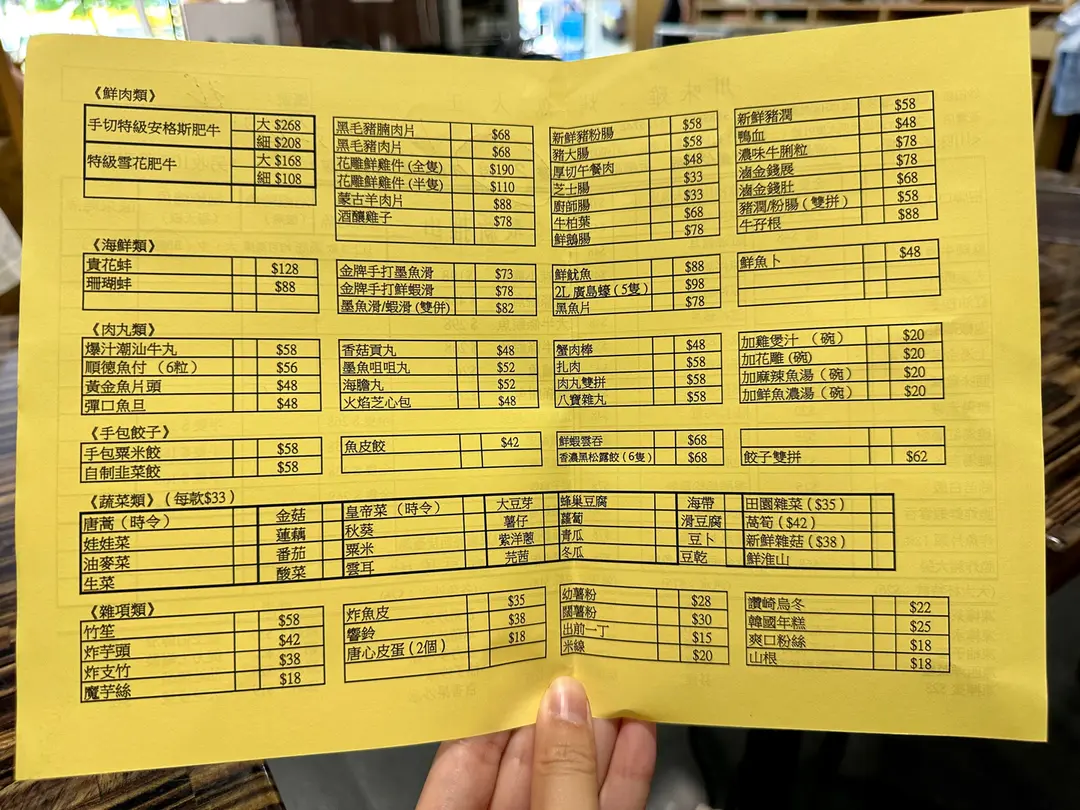 《鮮肉類》
手切特級安格斯肥牛 大 $268
細 $208
特級雪花肥牛 大 $168
細 $108
黑毛豬腩肉片 $68
黑毛豬肉片 $68
花雕鮮雞件 (全隻) $190
花雕鮮雞件 (半隻) $110
蒙古羊肉片 $88
酒釀雞子 $78
新鮮豬粉腸 $58
豬大腸 $58
厚切午餐肉 $48
芝士腸 $33
廚師腸 $33
牛柏葉 $68
鮮鵝腸 $78
新鮮豬潤 $58
鴨血 $48
濃味牛脷粒 $78
滷金錢展 $78
滷金錢肚 $68
豬潤/粉腸 (雙拼) $58
牛孖根 $88
《海鮮類》
貴花蚌 $128
珊瑚蚌 $88
金牌手打墨魚滑 $73
金牌手打鮮蝦滑 $78
墨魚滑/蝦滑 (雙併) $82
鮮魷魚 $88
2L 廣島蠔 (5隻) $98
黑魚片 $78
鮮魚卜 $48
《肉丸類》
爆汁潮汕牛丸 $58
順德魚付 (6粒) $56
黃金魚片頭 $48
彈口魚旦 $48
香菇貢丸 $48
墨魚咀咀丸 $52
海膽丸 $52
火焰芝心包 $48
蟹肉棒 $48
扎肉 $58
肉丸雙拼 $58
八寶雜丸 $58
加雞煲汁 (碗) $20
加花雕 (碗) $20
加麻辣魚湯 (碗) $20
加鮮魚濃湯 (碗) $20
《手包餃子》
手包粟米餃 $58
自制韭菜餃 $58
魚皮餃 $42
鮮蝦雲吞 $68
香濃黑松露餃 (6隻) $68
餃子雙拼 $62
《蔬菜類》(每款$33)
唐蒿 (時令) 金菇 皇帝菜 (時令) 大豆芽 蜂巢豆腐 海帶 田園雜菜 ($35)
娃娃菜 蓮藕 秋葵 薯仔 蘿蔔 滑豆腐 萵筍 ($42)
油麥菜 番茄 粟米 紫洋蔥 青瓜 豆卜 新鮮雜菇 ($38)
生菜 酸菜 雲耳 芫茜 冬瓜 豆乾 鮮淮山
《雜項類》
竹笙 $58
炸芋頭 $42
炸支竹 $38
魔芋絲 $18
炸魚皮 $35
響鈴 $38
唐心皮蛋 (2個) $18
幼薯粉 $28
闊薯粉 $30
出前一丁 $15
米線 $20
讚崎烏冬 $22
韓國年糕 $25
爽口粉絲 $18
山根 $18